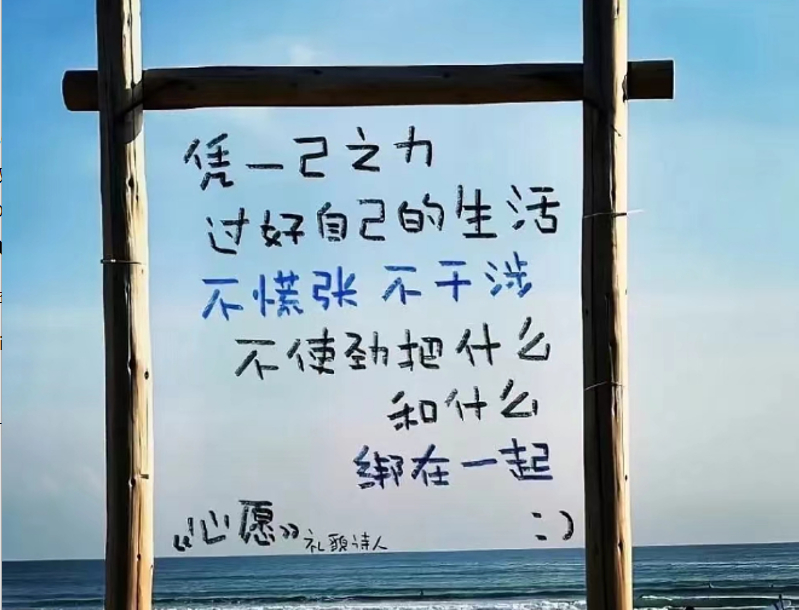 凭一己之力
过好自己的生活
不慌张 不干涉
不使劲把什么
和什么
绑在一起
《心愿》礼貌诗人 :)